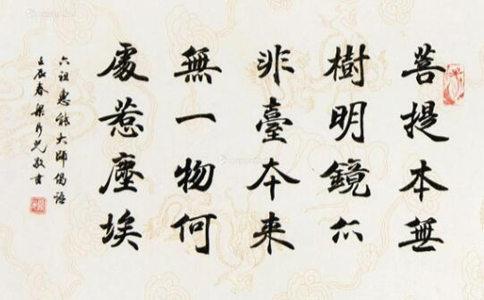 菩提本無
樹明鏡亦
非臺本来
無一物何
處惹塵埃
六祖惠能大師偈語
壬辰春梁敬書